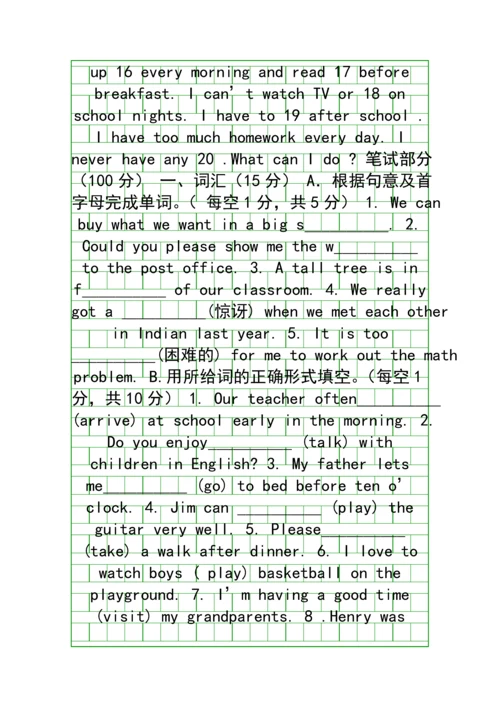 up 16 every morning and read 17 before
breakfast. I can’t watch TV or 18 on
school nights. I have to 19 after school .
I have too much homework every day. I
never have any 20 .What can I do ? 笔试部分
（100分） 一、词汇（15分） A．根据句意及首
字母完成单词。（ 每空1分，共5分） 1. We can
buy what we want in a big s__________. 2.
Could you please show me the w__________
to the post office. 3. A tall tree is in
f__________ of our classroom. 4. We really
got a __________(惊讶) when we met each other
in Indian last year. 5. It is too
__________(困难的) for me to work out the math
problem. B.用所给词的正确形式填空。（每空1
分，共10分） 1. Our teacher often__________
(arrive) at school early in the morning. 2.
Do you enjoy__________ (talk) with
children in English? 3. My father lets
me__________ (go) to bed before ten o’
clock. 4. Jim can __________ (play) the
guitar very well. 5. Please__________
(take) a walk after dinner. 6. I love to
watch boys ( play) basketball on the
playground. 7. I’m having a good time
(visit) my grandparents. 8 .Henry was